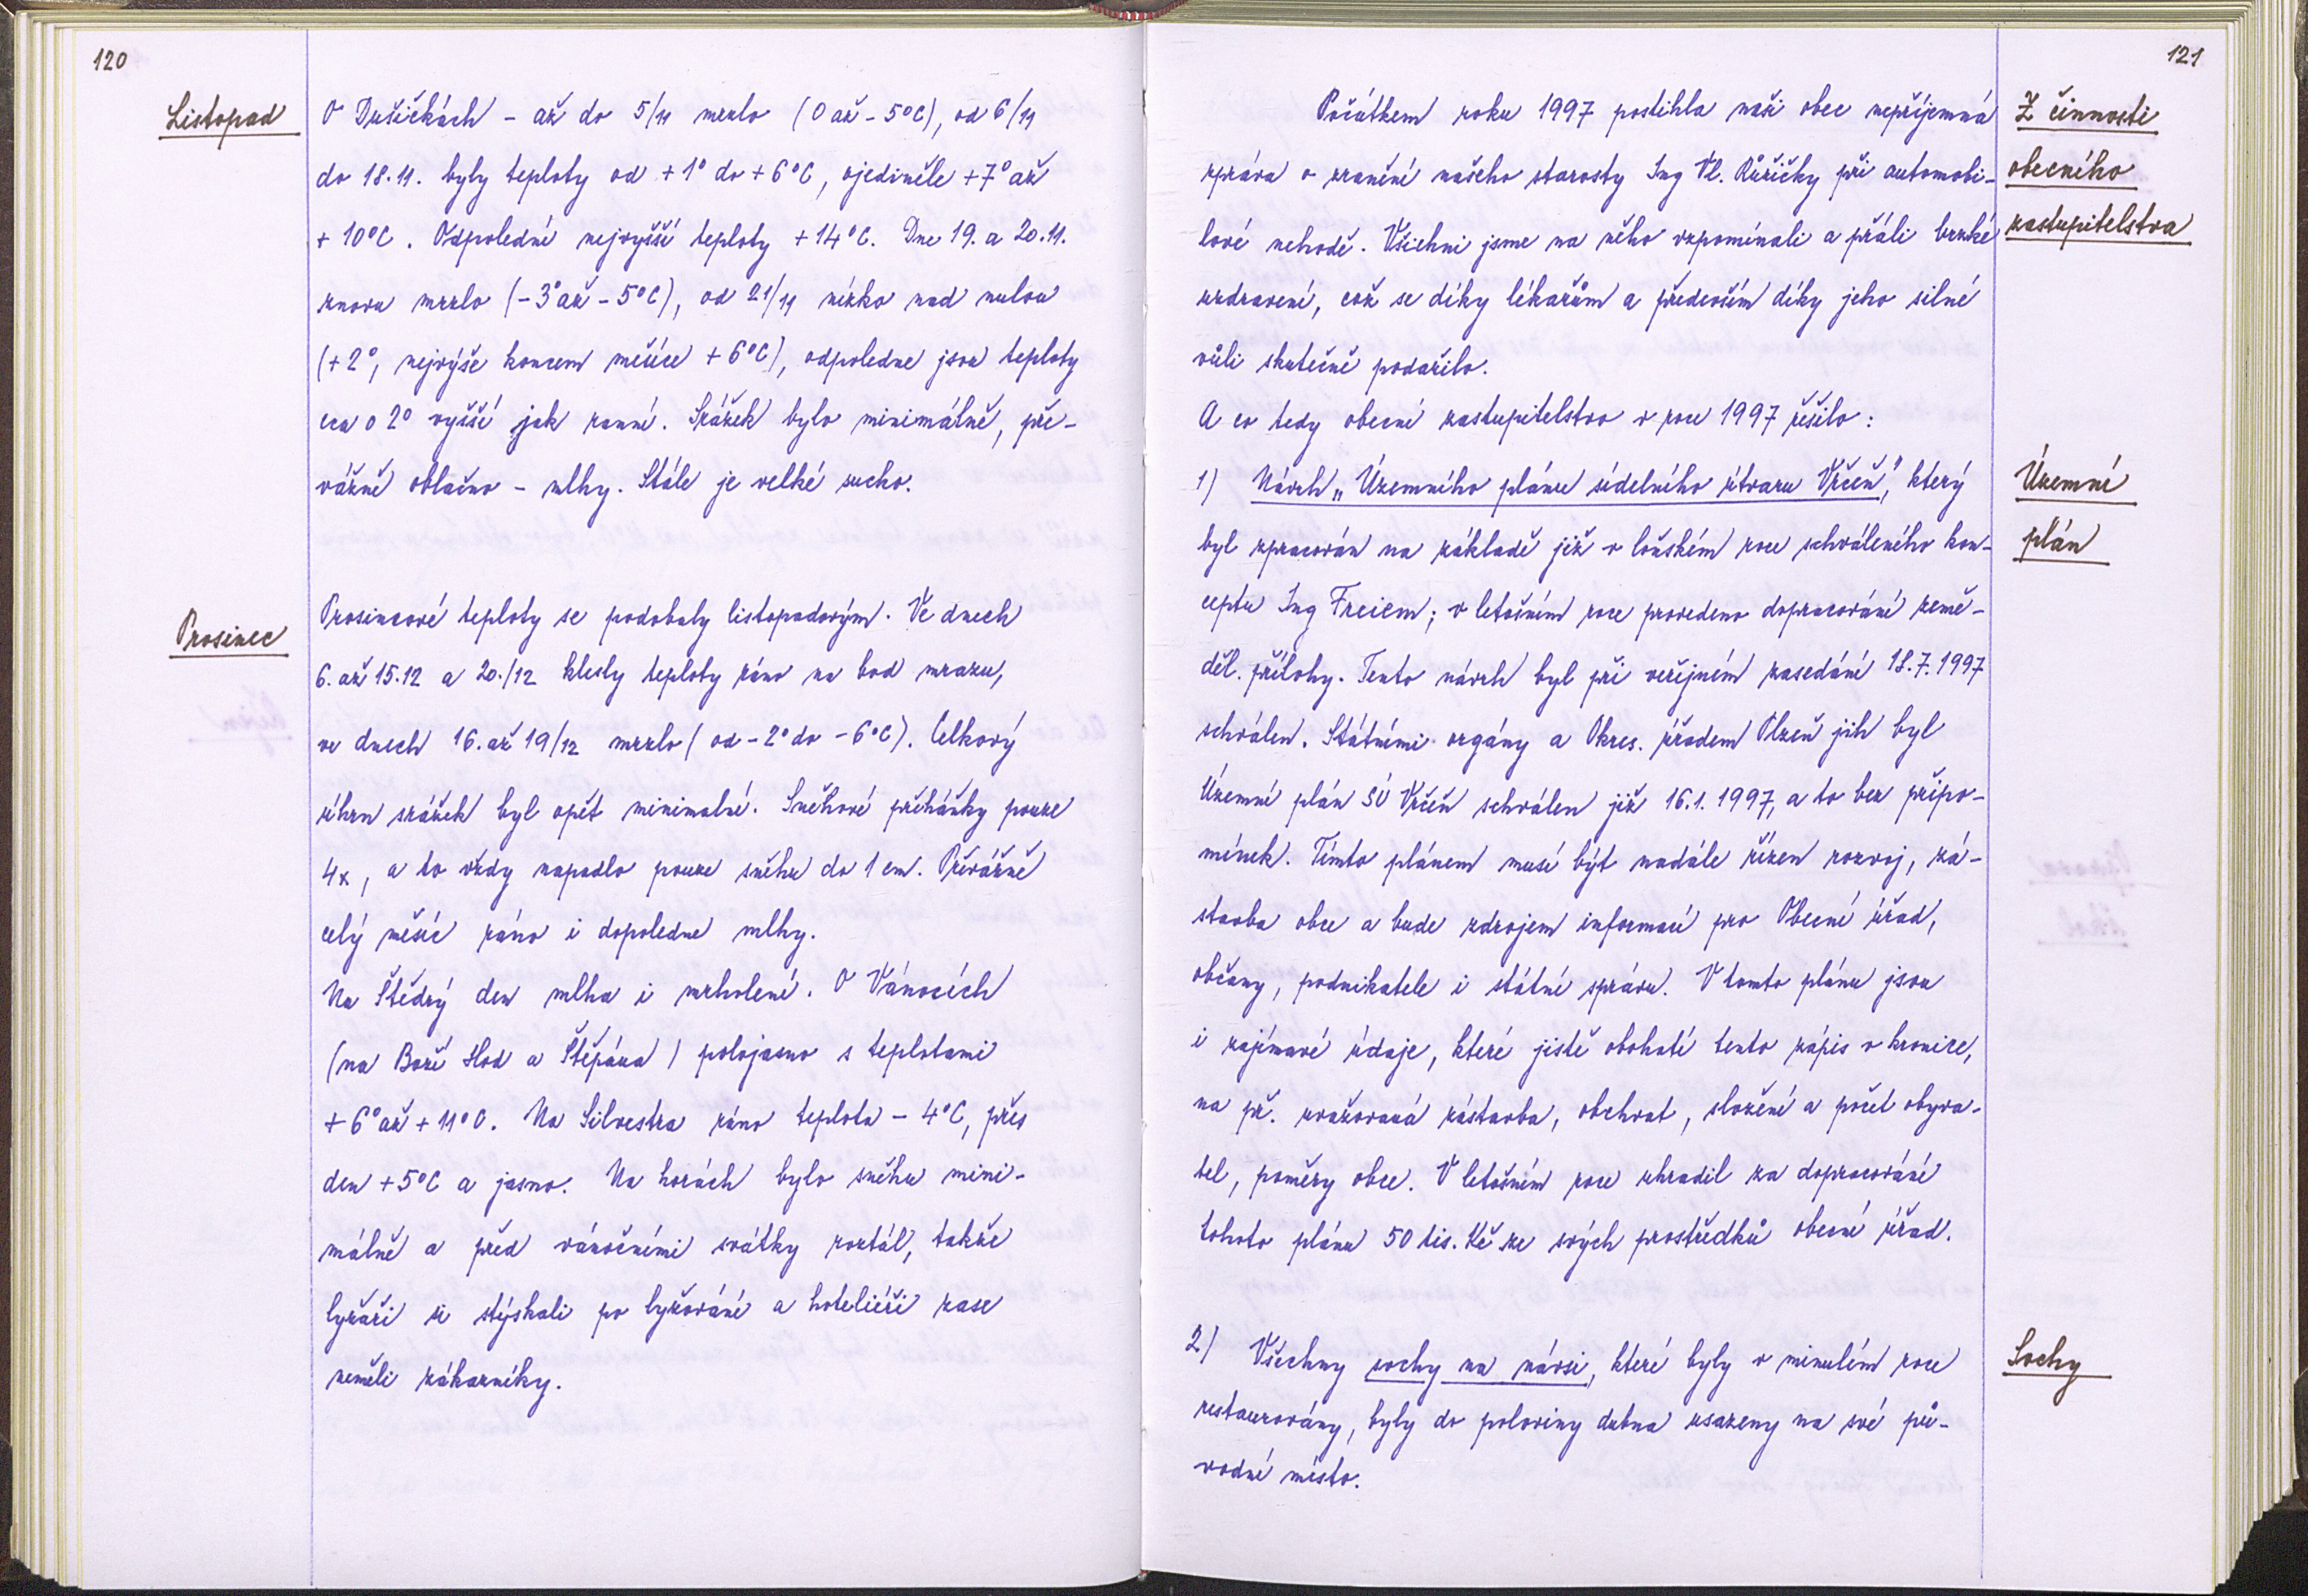 120
Listopad
O Dušičkách - až do 5/11 mrzlo (0 až - 5°C), od 6/11
do 18.11. byly teploty od + 1° do + 6°C, ojediněle + 7° až
+ 10°C. Odpolední nejvyšší teploty + 14°C. Dne 19. a 20.11.
znovu mrzlo (- 3° až - 5°C), od 21/11 nízko nad nulou
(+ 2°, nejvýše koncem měsíce + 6°C), odpoledne jsou teploty
cca o 2° vyšší jak ranní. Srážek bylo minimálně, pře-
vážně oblačno - mlhy. Stále je velké sucho.
Prosinec
Prosincové teploty se podobaly listopadovým. Ve dnech
6. až 15.12 a 20./12 klesly teploty ráno na bod mrazu,
ve dnech 16. až 19/12 mrzlo (od - 2° do - 6°C). Celkový
úhrn srážek byl opět minimalní. Sněhové přeháňky pouze
4x, a to vždy napadlo pouze sněhu do 1 cm. Převážně
celý měsíc ráno i dopoledne mlhy.
Na Štědrý den mlha i mrholení. O Vánocích
(na Boží Hod a Štěpána) polojasno s teplotami
+ 6° až + 11°C. Na Silvestra ráno teplota - 4°C, přes
den + 5°C a jasno. Na horách bylo sněhu mini-
málně a před vánočními svátky roztál, takže
lyžaři si stýskali po lyžování a hoteliéři zase
neměli zákazníky.
121
Z činnosti
obecního
zastupitelstva
Počátkem roku 1997 postihla naši obec nepříjemná
zpráva o zranění našeho starosty Ing Vl. Růžičky při automobi-
lové nehodě. Všichni jsme na něho vzpomínali a přáli brzké
uzdravení, což se díky lékařům a především díky jeho silné
vůli skutečně podařilo.
A co tedy obecní zastupitelstvo v roce 1997 řešilo:
Územní
plán
1) Návrh „Územního plánu sídelního útvaru Vrčeň", který
byl zpracován na základě již v loňském roce schváleného kon-
ceptu Ing Freiem; v letošním roce provedeno dopracování země-
děl. přílohy. Tento návrh byl při veřejném zasedání 18.7.1997
schválen. Státními orgány a Okres. úřadem Plzeň jih byl
Územní plán SÚ Vrčeň schválen již 16.1.1997, a to bez připo-
mínek. Tímto plánem musí být nadále řízen rozvoj, zá-
stavba obce a bude zdrojem informací pro Obecní úřad,
občany, podnikatele i státní správu. V tomto plánu jsou
i zajímavé údaje, které jistě obohatí tento zápis v kronice,
na př. uvažovaná zástavba, obchvat, složení a počet obyva-
tel, poměry obce. V letošním roce uhradil za dopracování
tohoto plánu 50 tis. Kč ze svých prostředků obecní úřad.
Sochy
2) Všechny sochy na návsi, které byly v minulém roce
restaurovány, byly do poloviny dubna usazeny na své pů-
vodní místo.